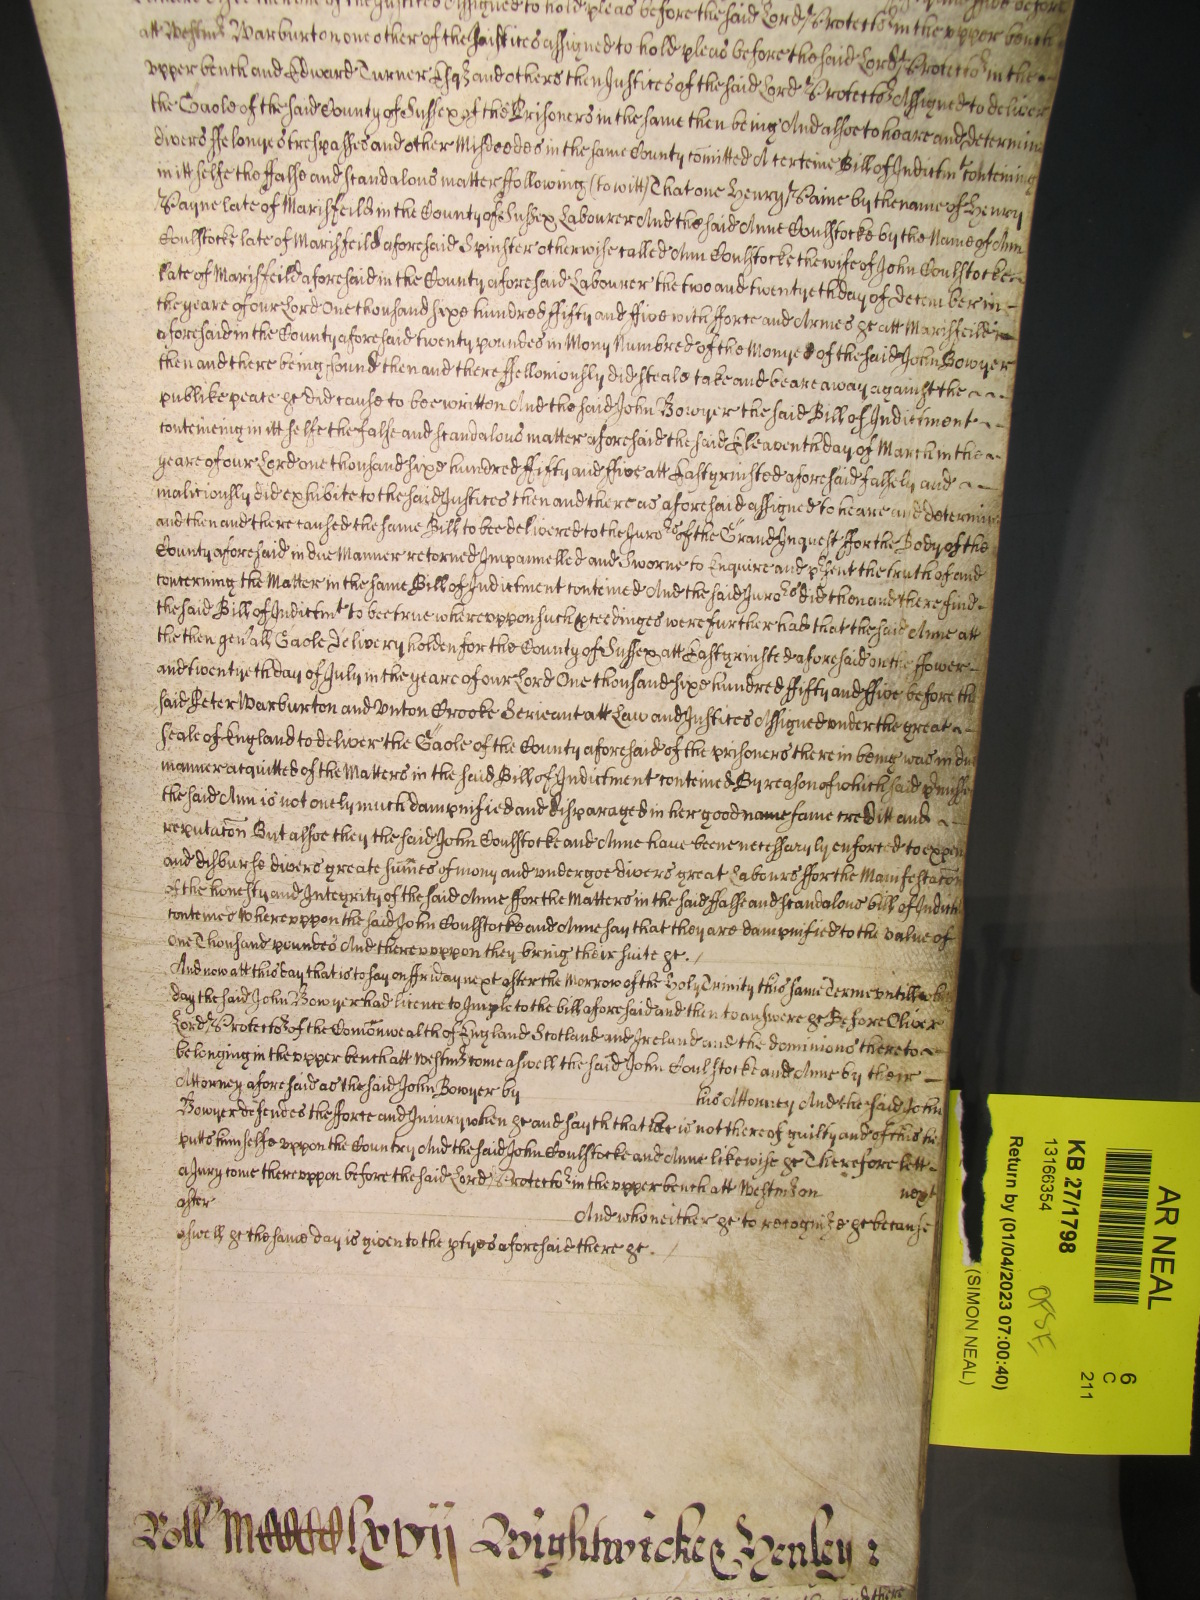 one of the Justices assigned to hold pleas before the said Lord Protector in the upper bench
att Westmr Warburton one other of the Justices assigned to hold pleas before the said Lord Protector in the
vpper bench and Edward Turner Esqr and others then Justices of the said Lord Protector Assigned to deliver
the Gaole of the said County of Sussex of the Prisoners in the same then being And alsoe to heare and determine
divers ffelonyes trespasses and other Misdeedes in the same County comitted A certeine Bill of Indictmt conteining
in itt selfe the ffalse and scandalous matter ffollowing (to witt) That one Henry Paine by the name of Henry
Payne late of Marisfeild in the County of Sussex Labourer And the said Anne Coulstocke by the Name of Ann
Coulstocke late of Marisfeild aforesaid Spinster otherwise called Ann Coulstocke the wife of John Coulstocke
late of Marisfeild aforesaid in the County aforesaid Labourer the two and twentyeth day of December in
the yeare of our Lord One thousand sixe hundred ffifty and ffive with fforce and Armes &c att Marisfeild
aforesaid in the County aforesaid twenty poundes in Mony Numbred of the Monyes of the said John Bowyer
then and there being found then and there ffelloniously did steale take and beare away against the
publike peace &c did cause to bee written And the said John Bowyer the said Bill of Indictment
conteineing in itt selfe the false and scandalous matter aforesaid the said Eleaventh day of March in the
yeare of our Lord one thousand sixe hundred ffifty and ffive att Eastgrinsted aforesaid falsely and
malitiously did exhibite to the said Justices then and there as aforesaid assigned to heare and determine
and then and there caused the same Bill to bee delivered to the Jurors of the Grand Inquest ffor the Body of the
County aforesaid in due Manner retorned Impannelled and Sworne to Enquire and psent the truth of and
concerning the Matter in the same Bill of Indictment conteined And the said Jurors did then and there find
the said Bill of Indictmt to bee true wherevppon such pceedinges were further had that the said Anne att
the then genall Gaole delivery holden for the County of Sussex att Eastgrinsted aforesaid on the ffower
and twentyeth day of July in the yeare of our Lord One thousand sixe hundred ffifty and ffive before the
said Peter Warburton and Vnton Crooke Serieant att Law and Justices Assigned vnder the great
seale of England to deliver the Gaole of the County aforesaid of the prisoners there in being was in due
manner acquitted of the Matters in the said Bill of Indictment conteined By reason of which said pmisses
the said Ann is not onely much dampnified and disparaged in her good name fame creditt and
reputacon But alsoe then the said John Coulstocke and Anne have beene necessaryly enforced to expend
and disburse divers greate sumes of mony and vndergoe divers great Labours ffor the Manifestacon
of the honesty and Integrity of the said Anne ffor the Matters in the said ffalse and scandalous bill of Indictmt
conteined wherevppon the said John Coulstocke and Anne say that they are dampnified to the value of
One Thousand poundes And therevppon they bring their suite &c.
And now att this day that is to say on ffriday next after the Morrow of the Holy Trinity this same Terme vntill which
day the said John Bowyer had licence to Imple to the bill aforesaid and then to answere &c Before Oliver
Lord Protector of the Comonwealth of England Scotland and Ireland and the dominions thereto
belonging in the vpper bench att Westmr come aswell the said John Coulstocke and Anne by their
Attorney aforesaid as the said John Bowyer by his Attorney And the said John
Bowyer defendes the fforce and Iniury when &c and sayth that hee is not thereof guilty and of this hee
putts himselfe vppon the Country And the said John Coulstocke and Anne likewise &c Therefore lett
a Jury come therevppon before the said Lord Protector in the vpper bench att Westmr on next
after And who neither &c to recognize &c because
aswell &c the same day is given to the ptyes aforesaid there &c.
Roll MCCCClxvij Wightwicke & Henley :
AR NEAL
KB 27/1798
13166354
Return by (01/04/2023 07:00:40)
(SIMON NEAL)
6
C
211